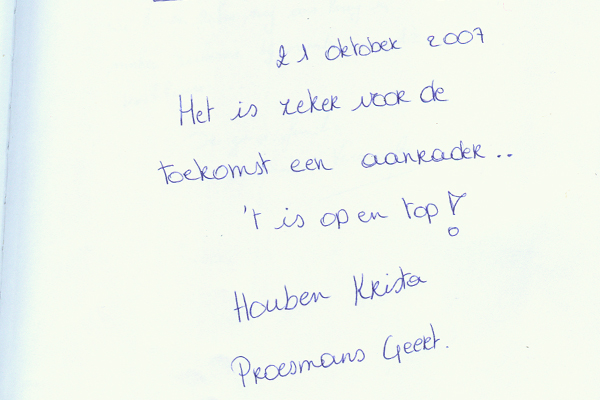 21 oktober 2007
Het is zeker voor de
toekomst een aanrader..
't is op en top!
Houben Krista
Proesmans Geert.